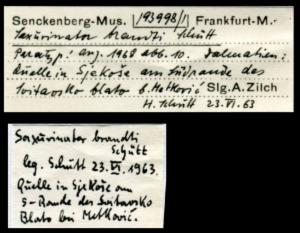 Senckenberg-Mus. 193998/1 Frankfurt-M.
Saxurinator brandti Schütt
Paratyp. 1968 Abb. 10. Dalmatien:
Quelle in Sjekoše am Südrande des
Svitavsko blato b. Metković Slg. A. Zilch
H. Schütt 23.VI.63
Saxurinator brandti
Schütt
leg. Schütt 23.VI.1963.
Quelle in Sjekoše am
S-Rande des Svitavsko
Blato bei Metković.